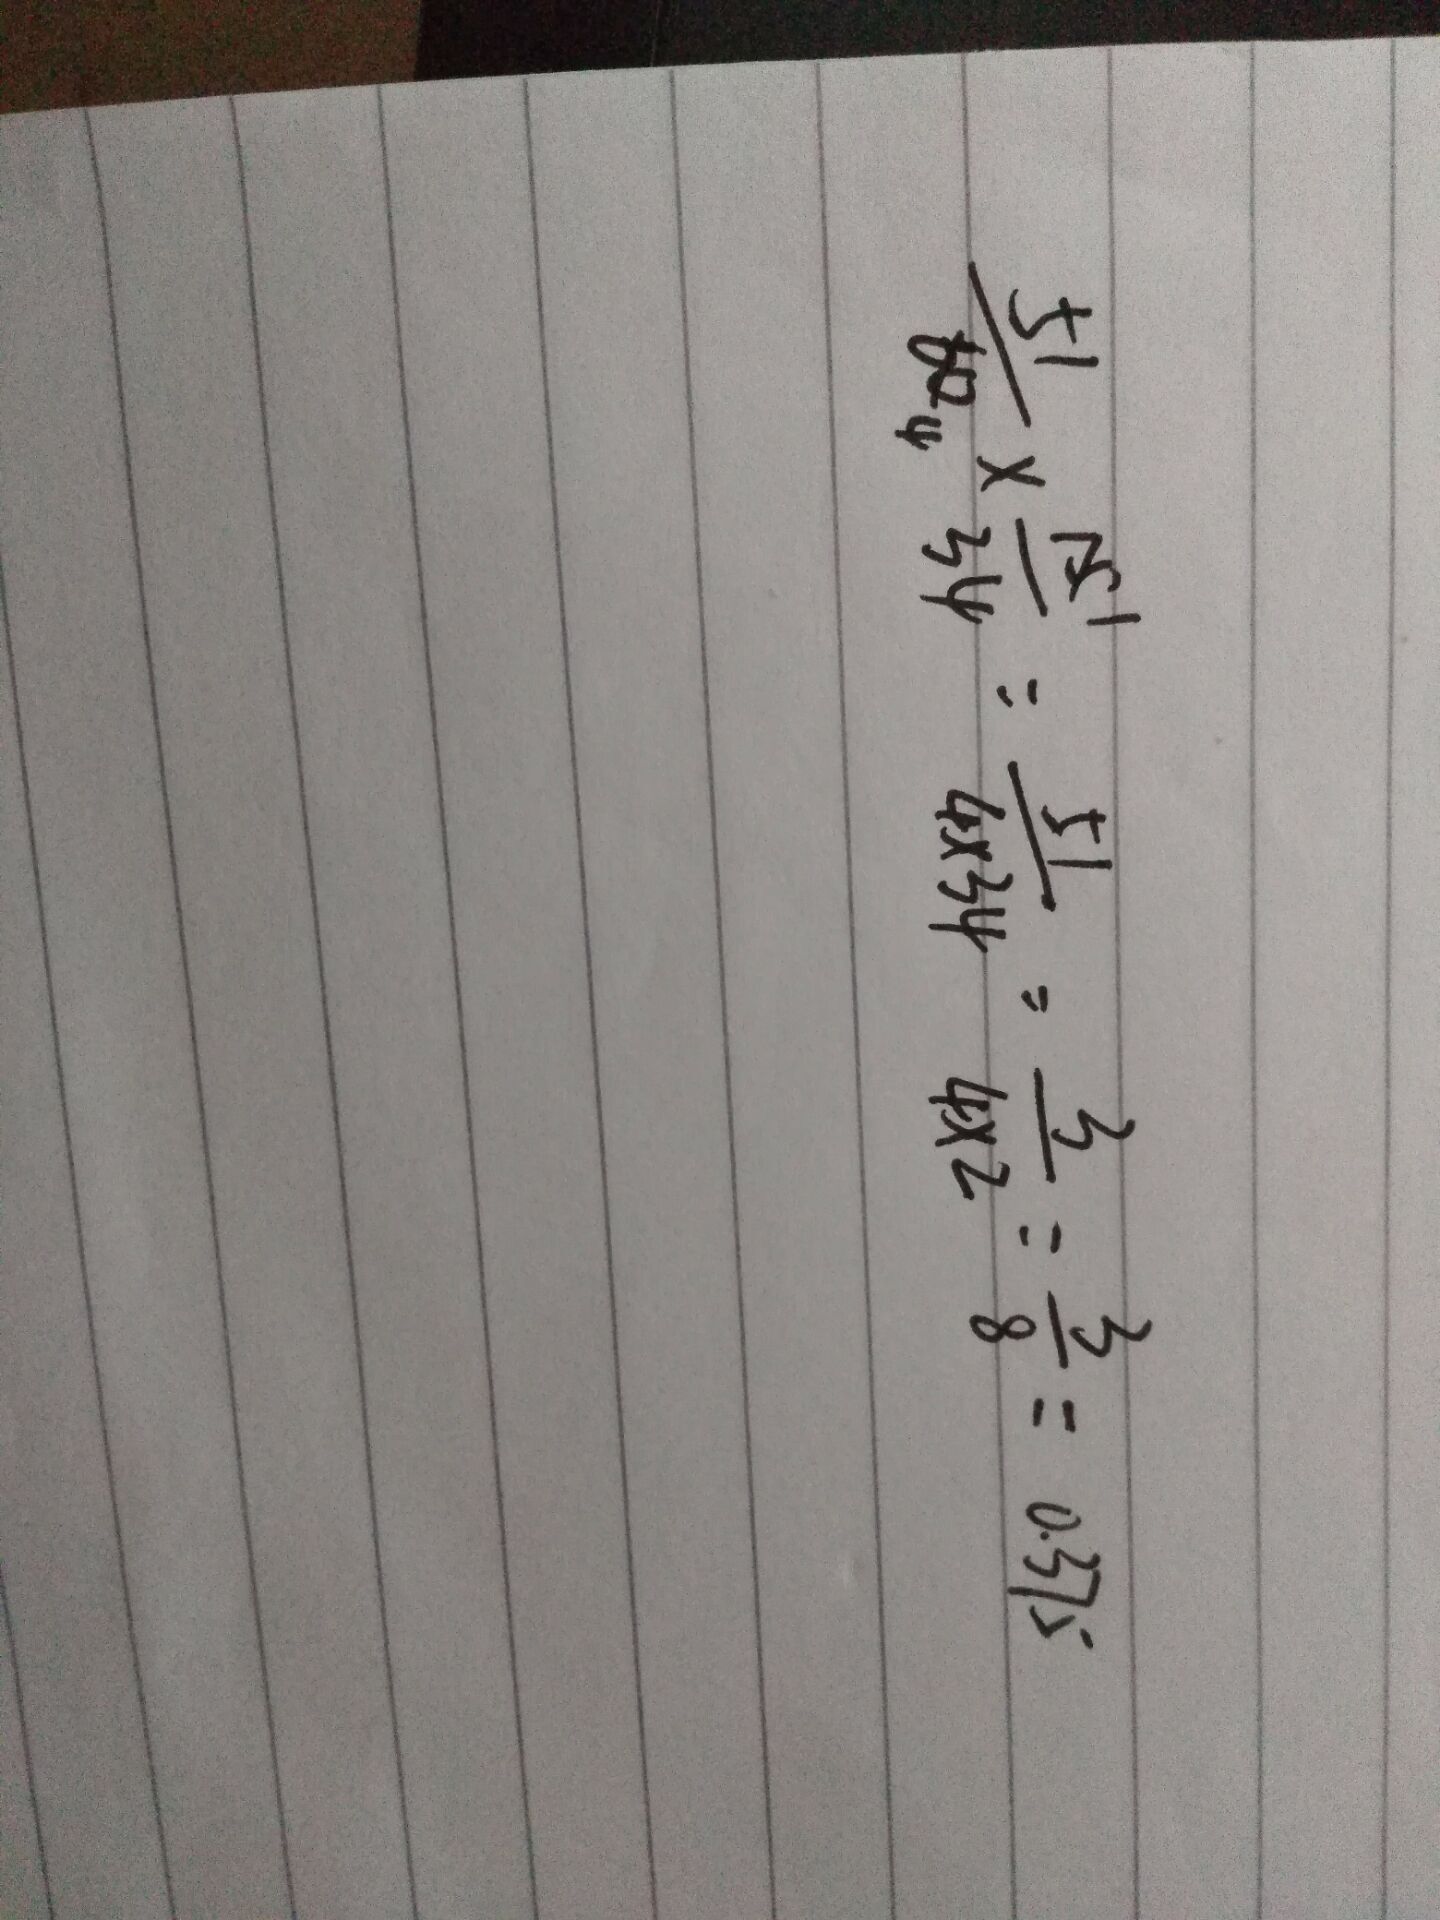 51/60 4 × 15 1/34 = 51/4×34 = 3/4×2 = 3/8 = 0.375